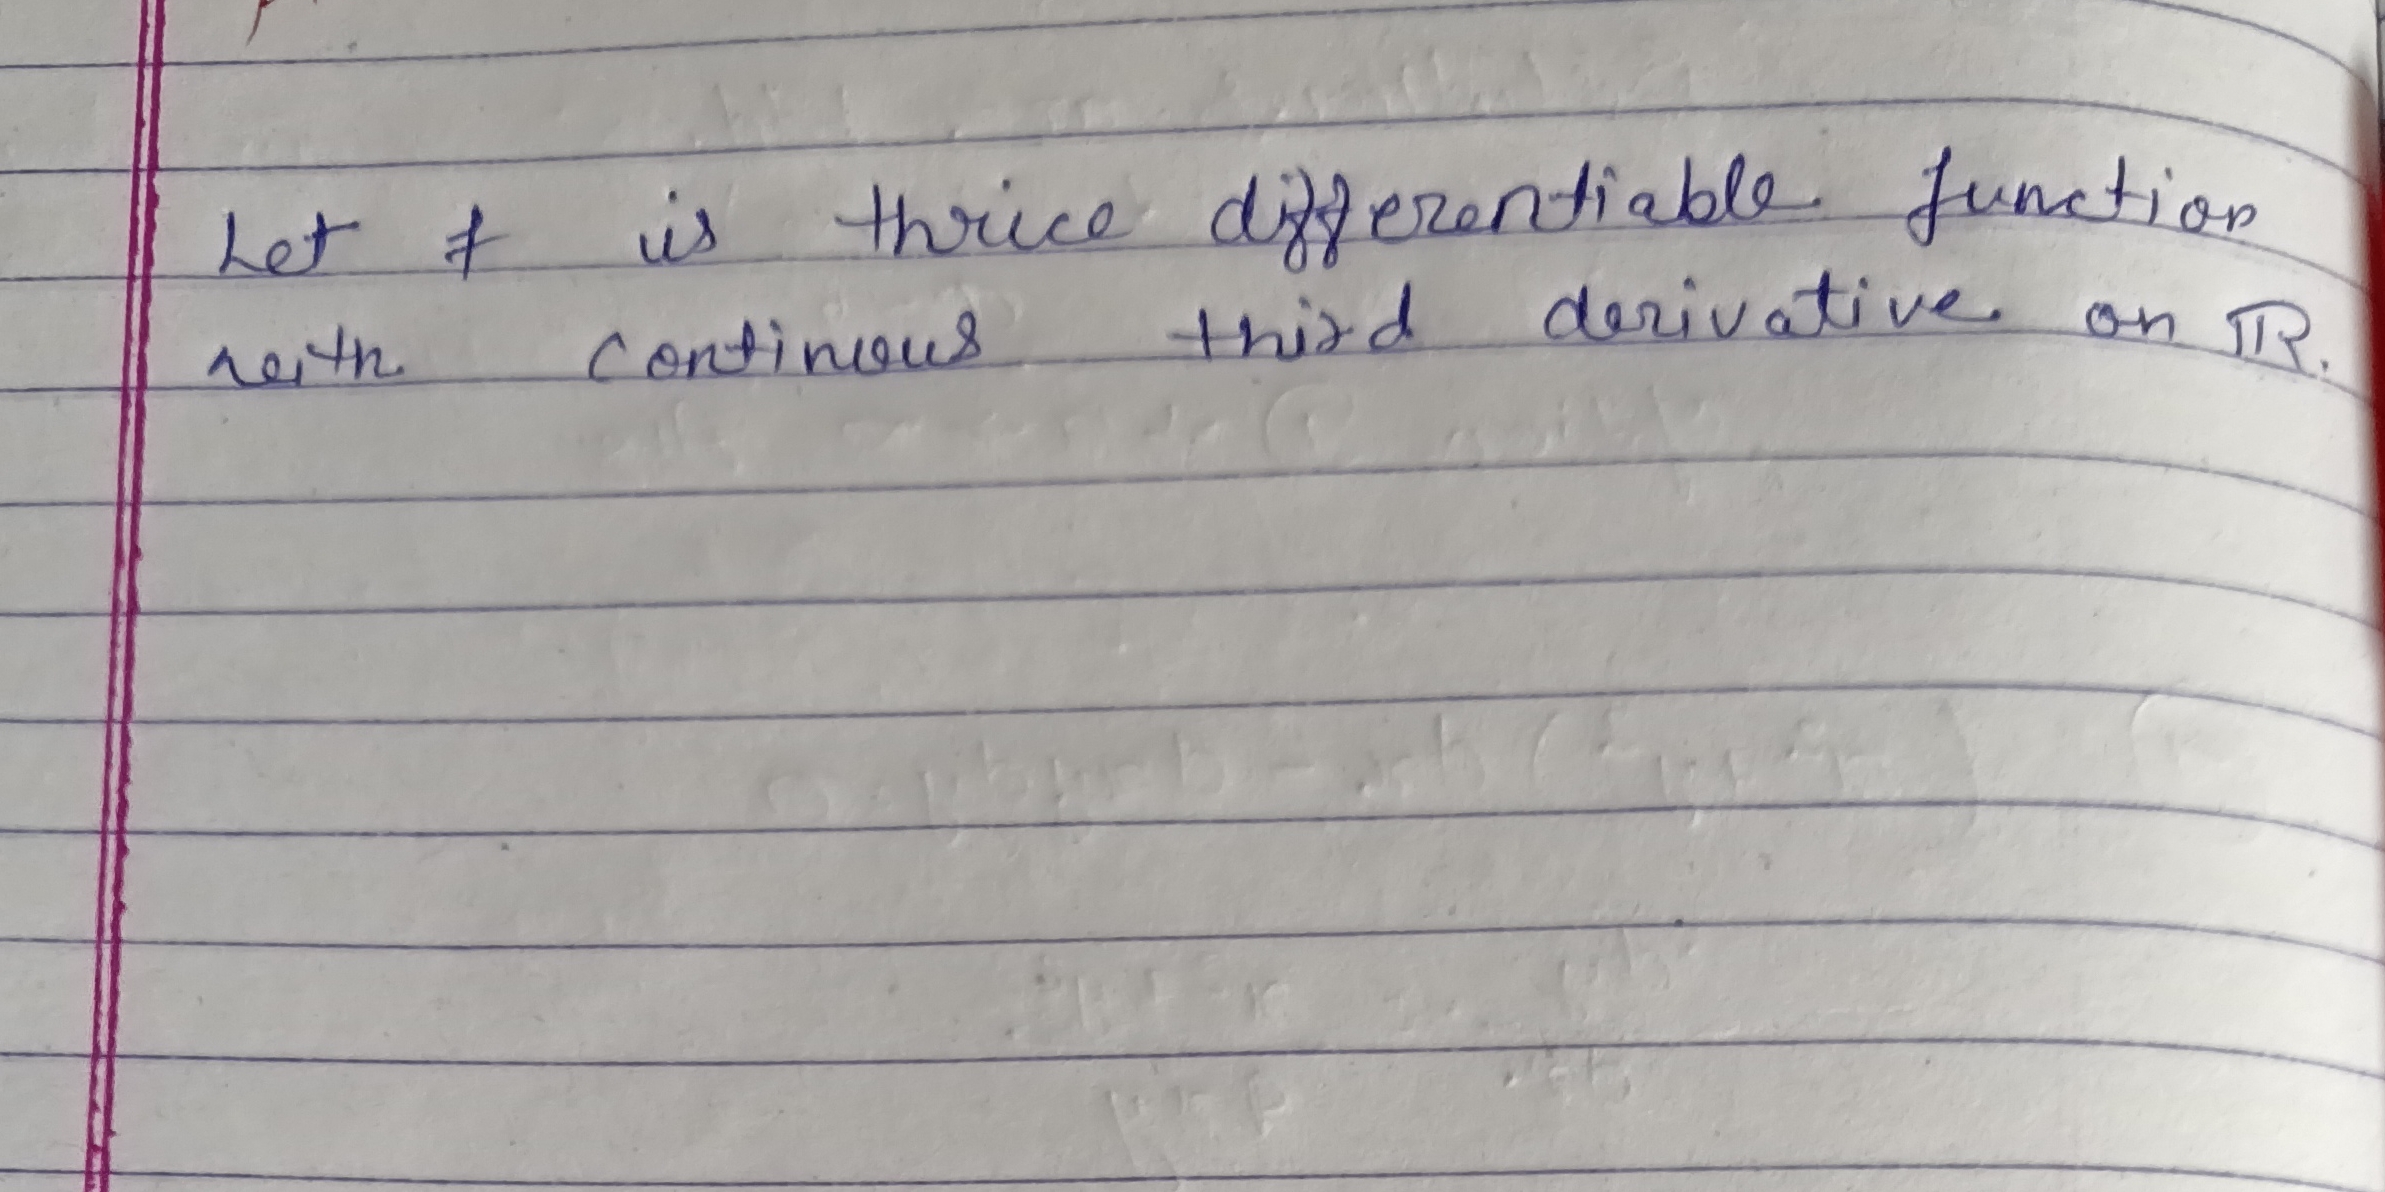 Let f is thrice differentiable function
with continuous third derivative on ℝ.